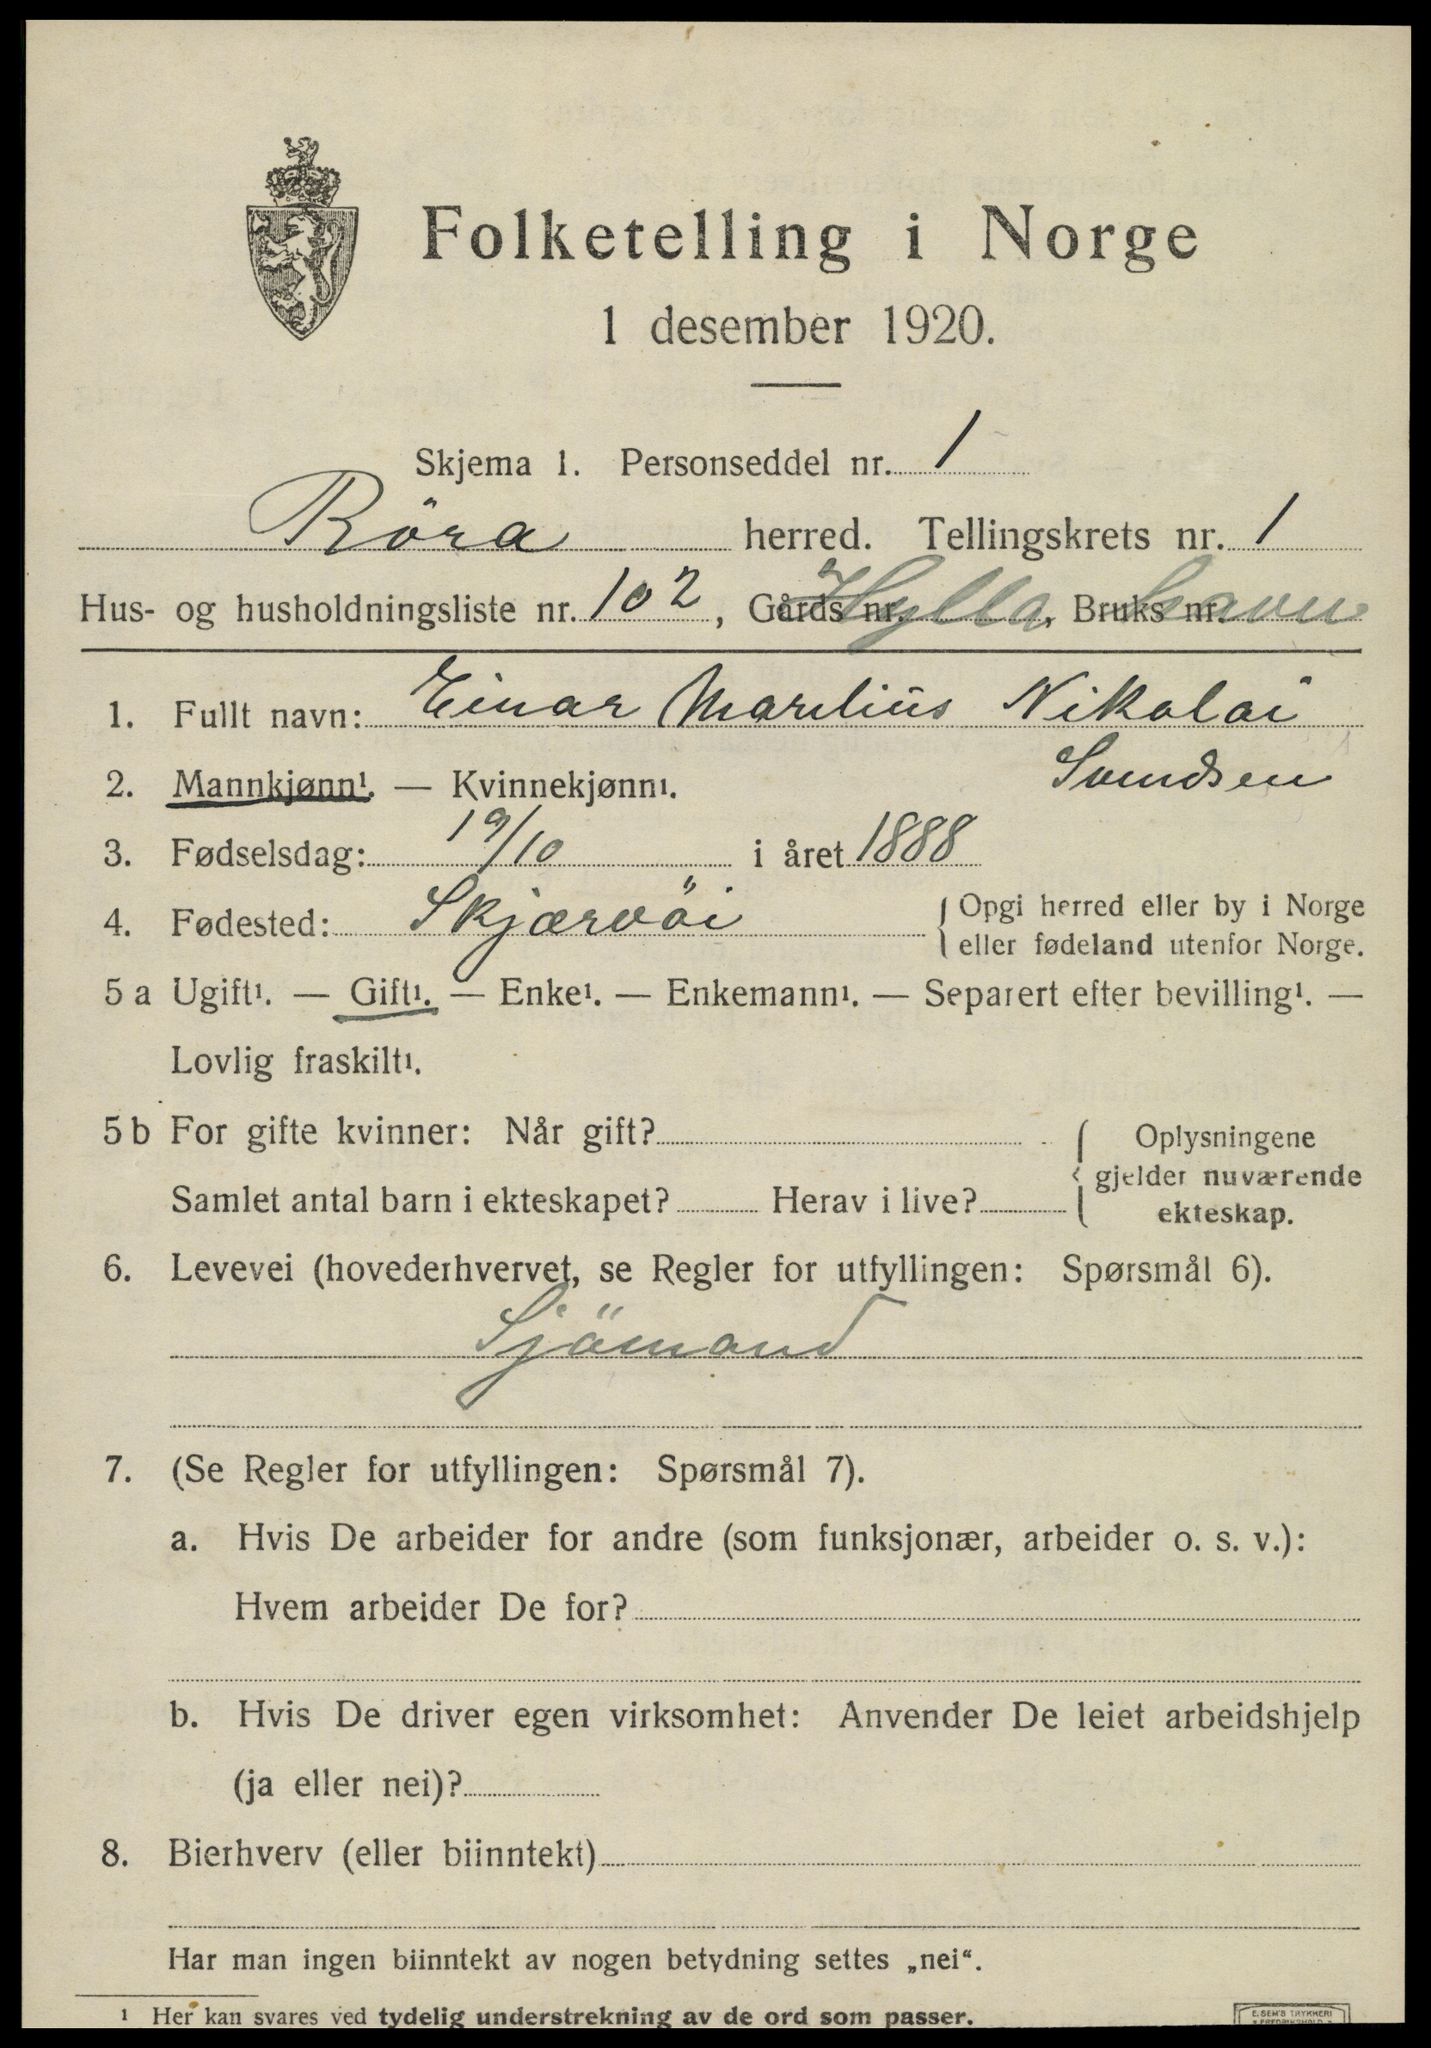 Folketelling i Norge
1 desember 1920.
Skjema 1. Personseddel nr. 1
Röra herred. Tellingskrets nr. 1
Hus- og husholdningsliste nr. 102, Gårds nr. Hylla, Bruks nr. havn
1. Fullt navn: Einar Marelius Nikolai
Svendsen
2. Mannkjønn¹. — Kvinnekjønn¹.
3. Fødselsdag: 19/10 i året 1888
4. Fødested: Skjærvöi { Opgi herred eller by i Norge
eller fødeland utenfor Norge.
5 a Ugift¹. — Gift¹. — Enke¹. — Enkemann¹. — Separert efter bevilling¹. —
Lovlig fraskilt¹.
5 b For gifte kvinner: Når gift?
Samlet antal barn i ekteskapet? Herav i live?
{ Oplysningene
gjelder nuværende
ekteskap.
6. Levevei (hovederhvervet, se Regler for utfyllingen: Spørsmål 6).
Sjömand
7. (Se Regler for utfyllingen: Spørsmål 7).
a. Hvis De arbeider for andre (som funksjonær, arbeider o. s. v.):
Hvem arbeider De for?
b. Hvis De driver egen virksomhet: Anvender De leiet arbeidshjelp
(ja eller nei)?
8. Bierhverv (eller biinntekt)
Har man ingen biinntekt av nogen betydning settes „nei“.
¹ Her kan svares ved tydelig understrekning av de ord som passer.
E. SEM'S TRYKKERI
FREDRIKSHALD